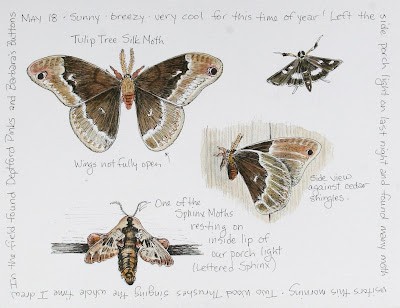 May 18 · Sunny · breezy · very cool for this time of year! Left the
side porch light on last night and found many moth
visitors this morning. Two Wood Thrushes singing the whole time I drew.
In the field found Deptford Pinks and Barbara's Buttons
Tulip Tree Silk Moth
Wings not fully open
side view
against cedar
shingles.
One of the
Sphinx Moths
resting on
inside lip of
our porch light
(Lettered Sphinx)